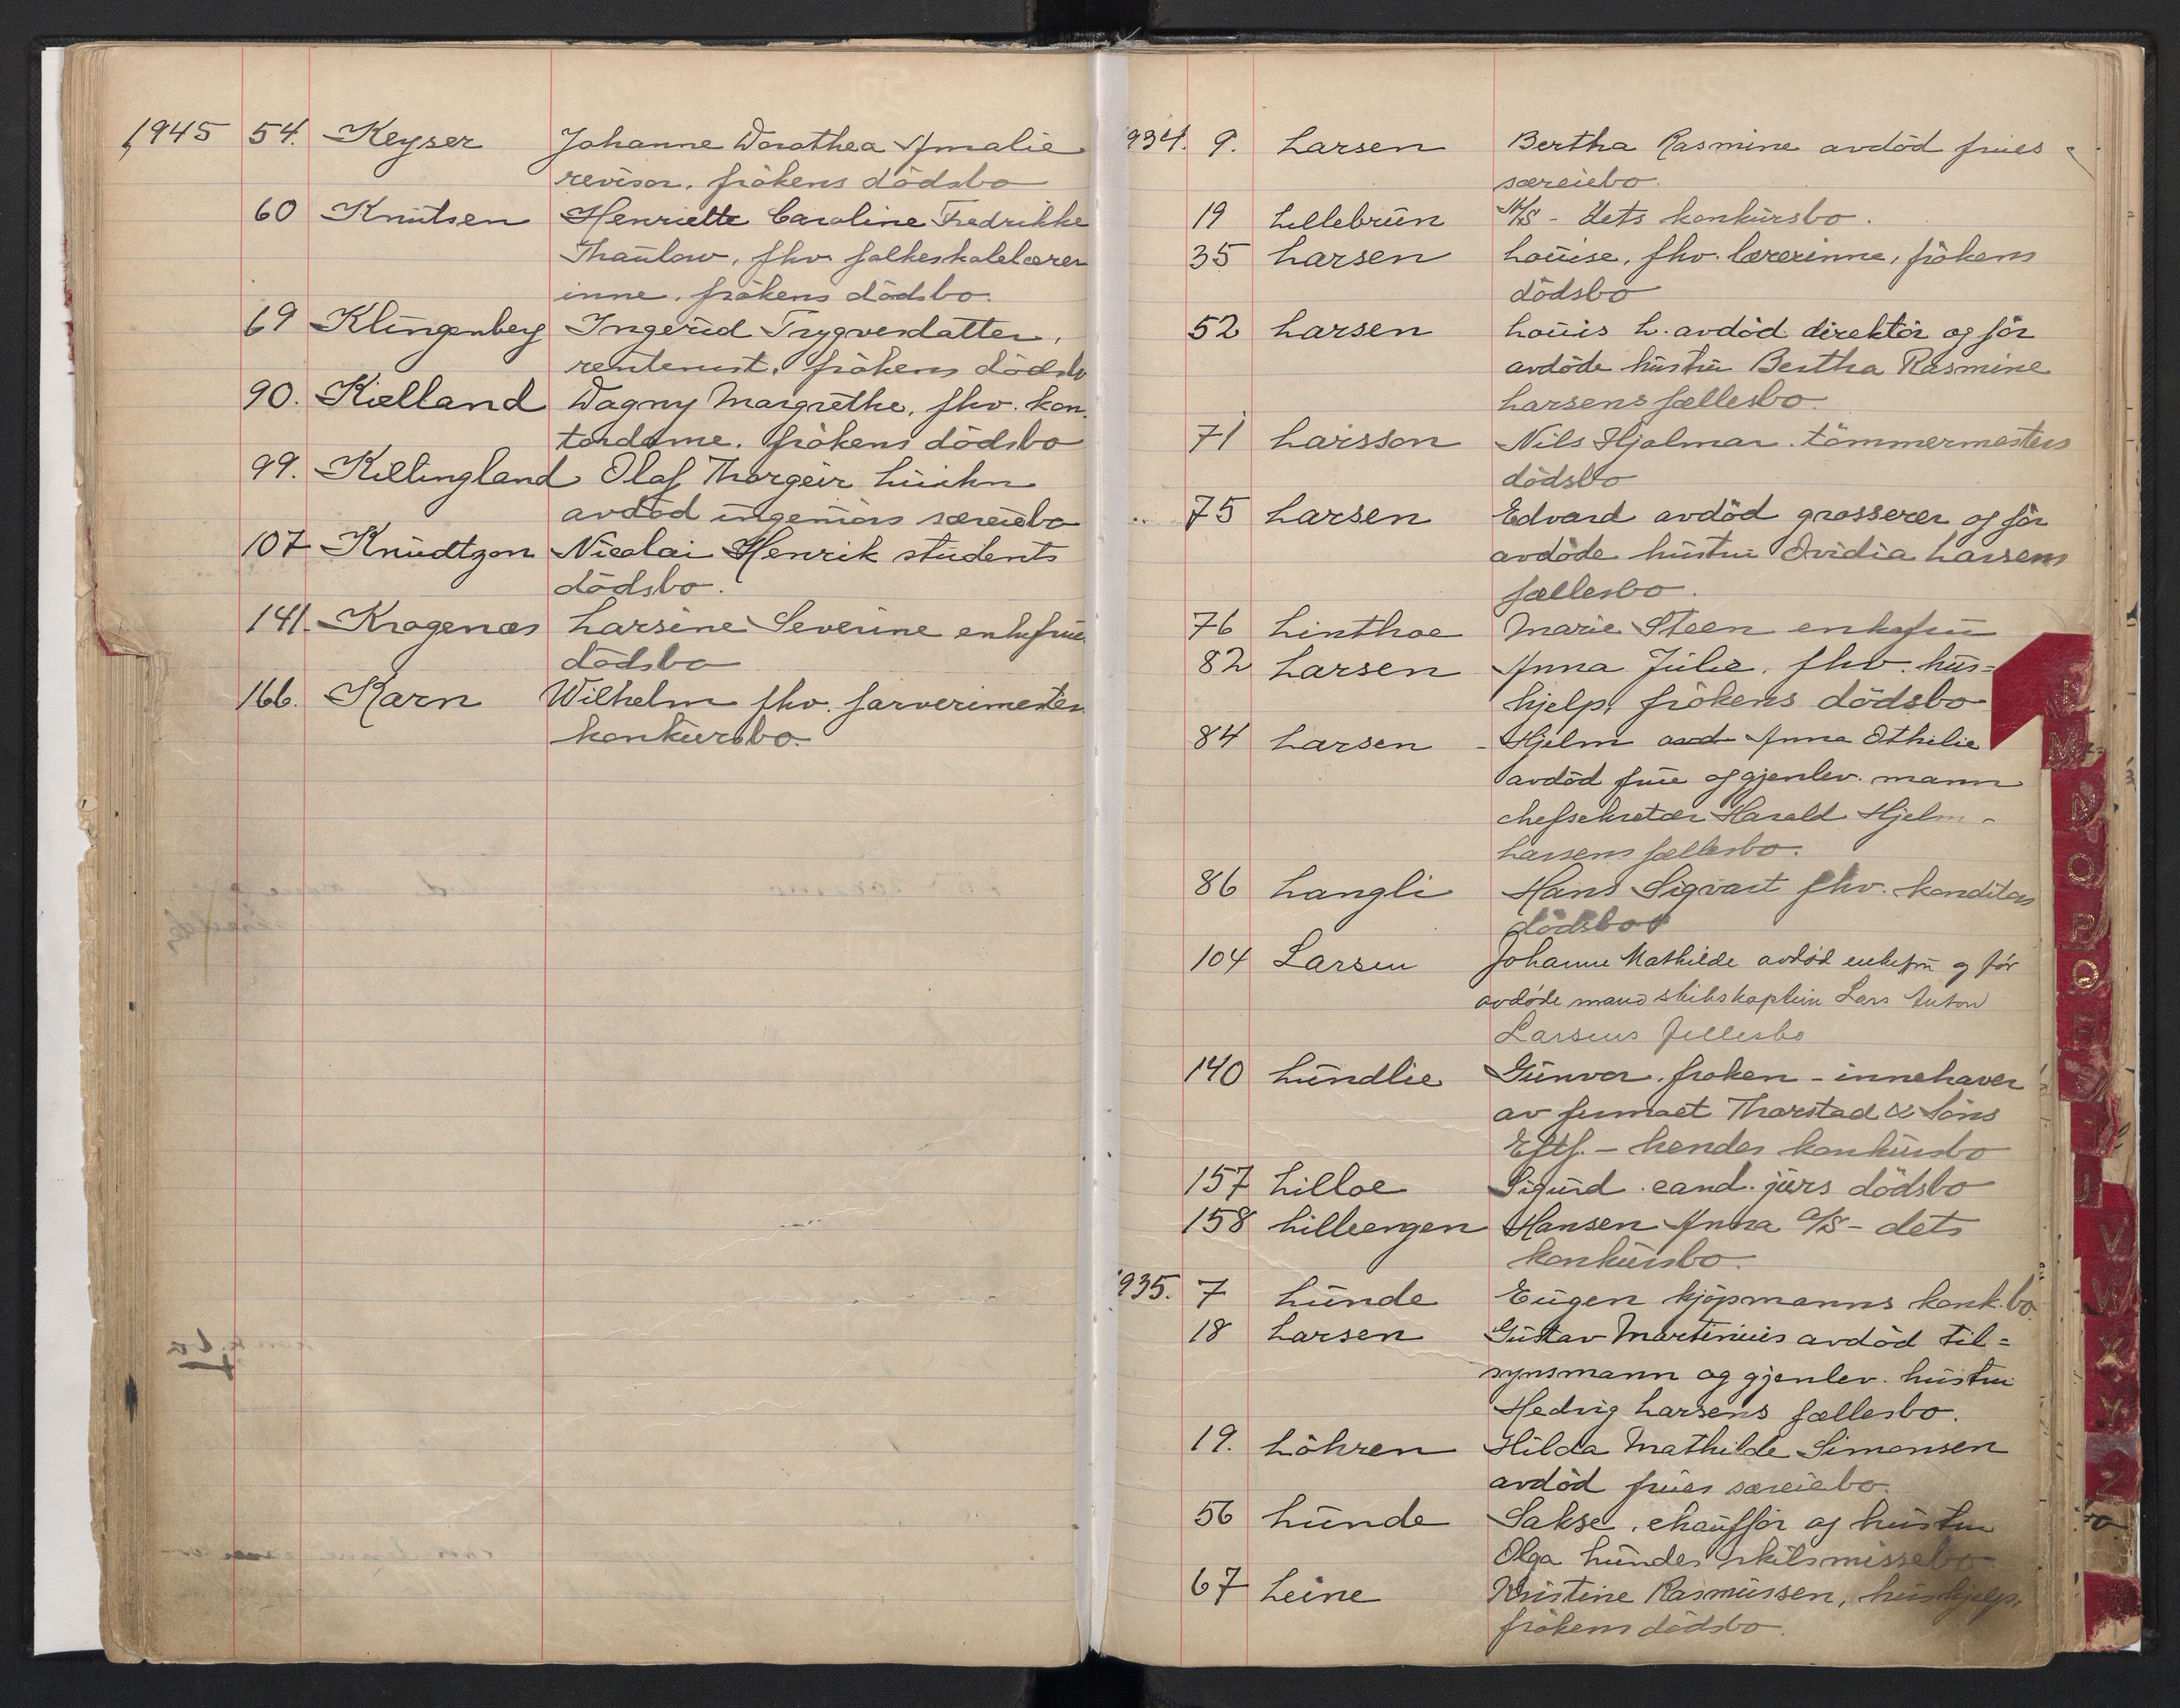 1945 54. Keyser Johanne Dorothea Amalie
revisor, frökens dödsbo
60 Knutsen Henriette Caroline Fredrikke
Thaulow, fhv. folkeskolelærer
inne, frökens dödsbo.
69 Klingenberg Ingerid Trygvesdatter,
rentenist, frökens dödsbo
90. Kielland Dagny Margrethe, fhv. kon.
tordame. frökens dödsbo
99. Killingland Olaf Thorgeir
avdöd ingeniörs særeiebo
107 Knudtzon Nicolai Henrik students
dödsbo.
141. Kragenæs Larsine Severine enkefrues
dödsbo
166. Karn Wilhelm fhv. farverimester
konkursbo.
1934. 9. Larsen Bertha Rasmine avdöd frues
særeiebo.
19 Lillebrun A/S - dets konkursbo.
35 Larsen Louise, fhv. lærerinne, frökens
dödsbo
52 Larsen Louis L. avdöd direktör og för
avdöde hustru Bertha Rasmine
Larsens fællesbo.
71 Larsson Nils Hjalmar. tömmermesters
dödsbo
75 Larsen Edvard avdöd grosserer og för
avdöde hustru Ovidia Larsens
fællesbo.
76 Linthoe Marie Steen enkefru
82 Larsen Anna Julie, fhv. hus=
hjelp, frökens dödsbo
84 Larsen - Hjelm Anna Othilie
avdöd frue og gjenlev. mann
chefsekretær Harald Hjelm -
Larsens fællesbo.
86 Langli Hans Sigvart fhv. konditors
dödsbo
104 Larsen Johanne Mathilde avdød enkefru og før
avdøde mand skibskaptein Lars Anton
Larsens Fellesbo
140 Lundlie Gunvor, froken - innehaver
av firmaet Thorstad & Söns
Eftf. - hendes konkursbo
157 Lilloe Sigurd. cand. jurs dödsbo
158 Lilleengen Hansen Anna A/S - dets
konkursbo.
1935. 7 Lunde Eugen kjöpmanns konk.bo.
18 Larsen Gustav Martinius avdöd til=
synsmann og gjenlev. hustru
Hedvig Larsens fællesbo.
19. Löhren Hilda Mathilde Simonsen
avdöd frues særeiebo.
56 Lunde Sakse, chaufför og hustru
Olga Lundes skilsmissebo
67 Leine Kristine Rasmussen, hushjelp,
frökens dödsbo.
L
M
N
O
P
Q
R
S
T
U
V
W
X
Y
Z